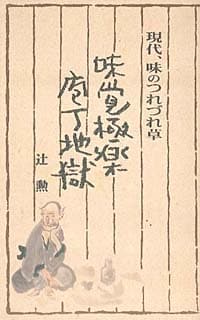 現代、味のつれづれ草
味覚極楽
庖丁地獄
辻勲